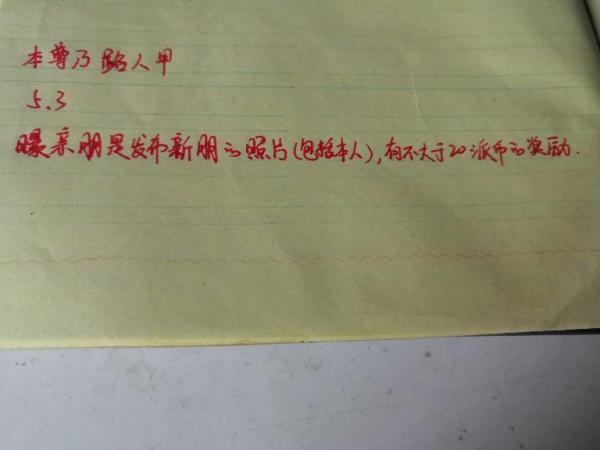 本尊乃路人甲
5.3
曝亲朋是发布新朋的照片(包括本人),有不大于20派币的奖励.